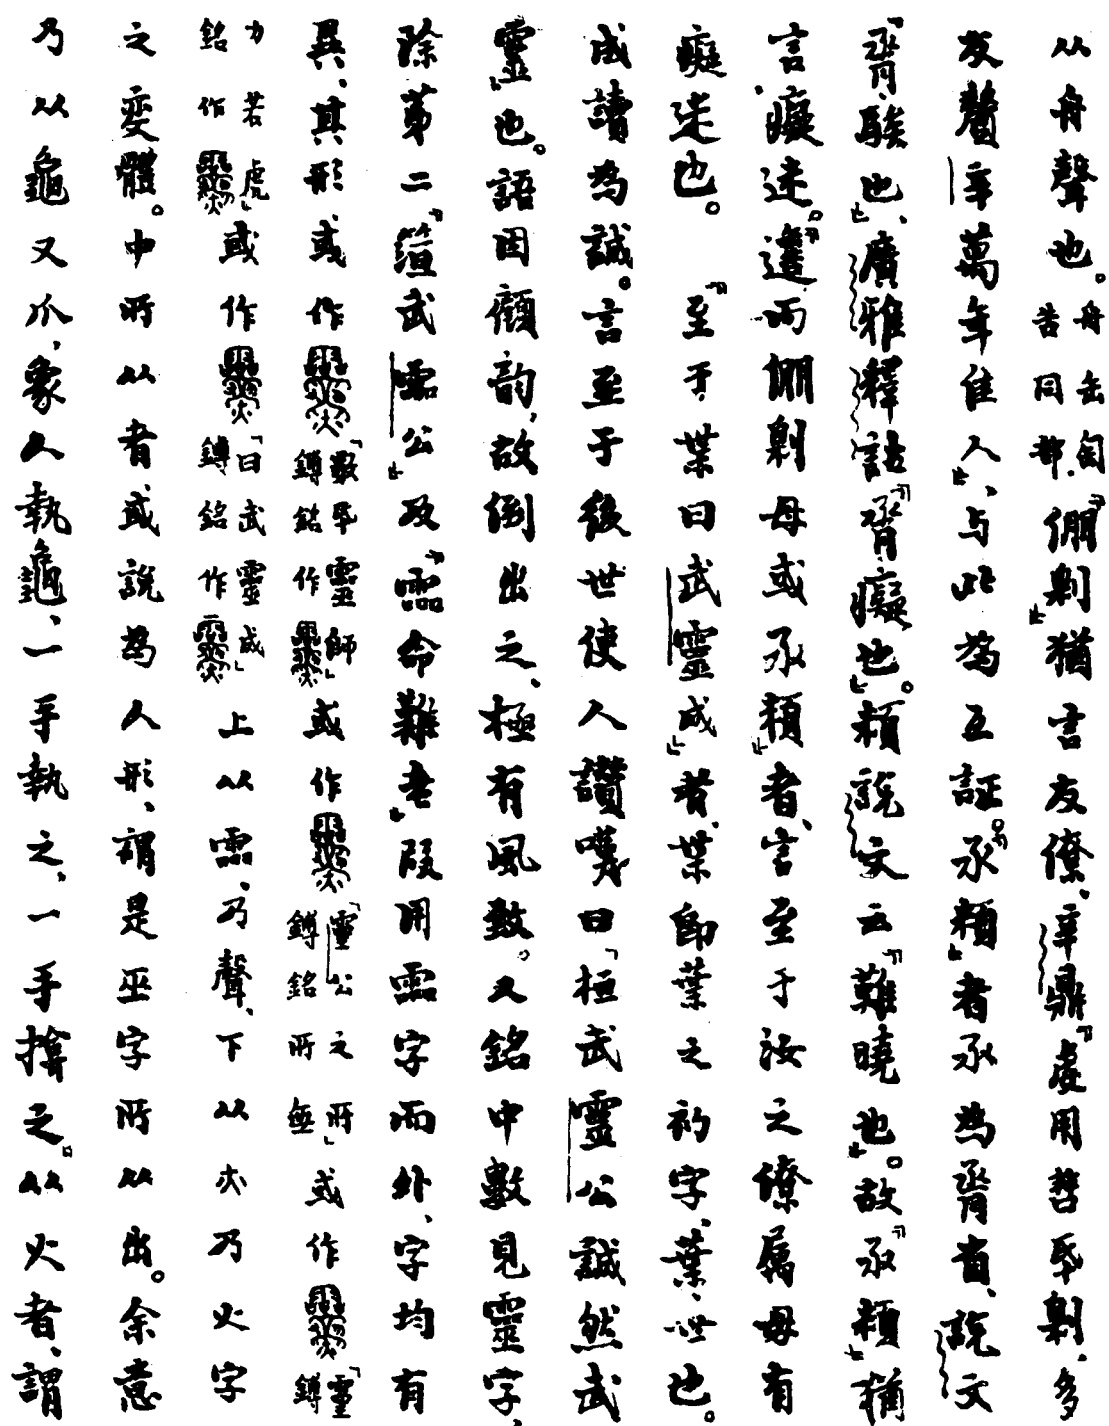 从舟聲也。舟缶匋告同部。「倗剌」猶言友僚、辛鼎「虔用哲𠨘剌、多
友釐辛萬年隹人」、与此為互証。「丞纇」者丞為脀省、說文
「脀、騃也」、廣雅釋詁「脀癡也」。纇說文云「難曉也」。故「丞纇」猶
言癡迷。「邍而倗剌毋或丞纇」者、言至于汝之僚属毋有
癡迷也。「至于枼曰武靈成」者、枼即葉之初字、葉、世也。
成讀為誠。言至于後世使人讚嘆曰「桓武靈公誠然武
靈」也。語因顧韵、故倒出之、極有風致。又銘中數見靈字、
除苐二「簋武霝公」及「霝命難老」段用霝字而外、字均有
異、其形、或作「數𠨘靈師」鎛銘作或作「靈公之所」鎛銘所無或作「靈
力若虎」銘作或作「曰武靈成」鎛銘作上从霝、乃聲、下从亦乃火字
之変體。中所从者、或說為人形、謂是巫字所从出。余意
乃从龜又爪、象人執龜、一手執之、一手揜之。从火者、謂